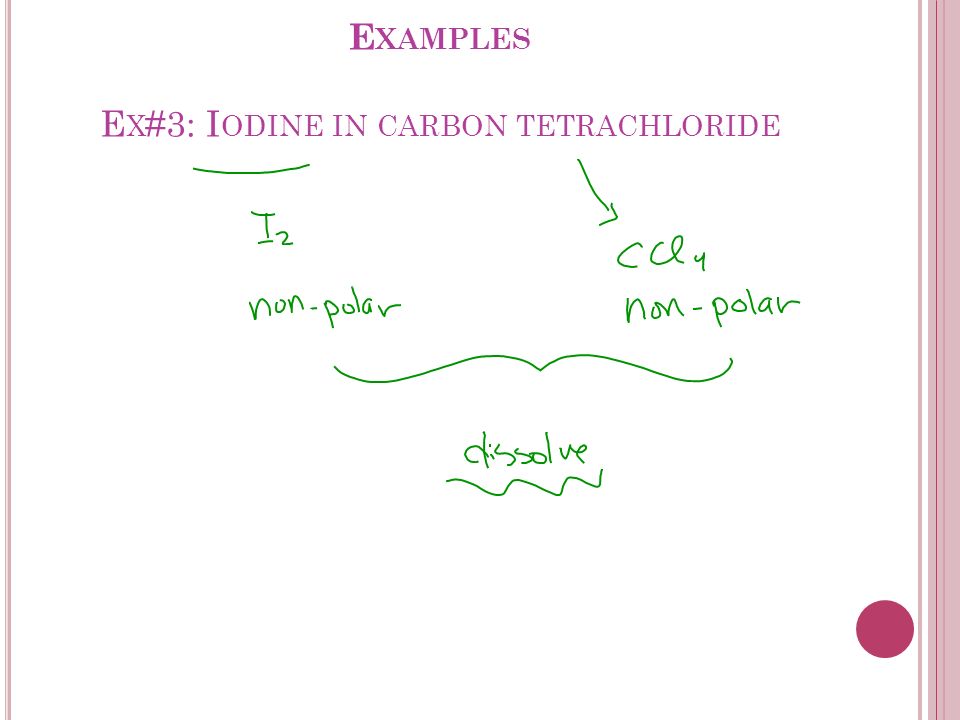 EXAMPLES
EX#3: IODINE IN CARBON TETRACHLORIDE
I2
CCl4
non-polar non-polar
dissolve